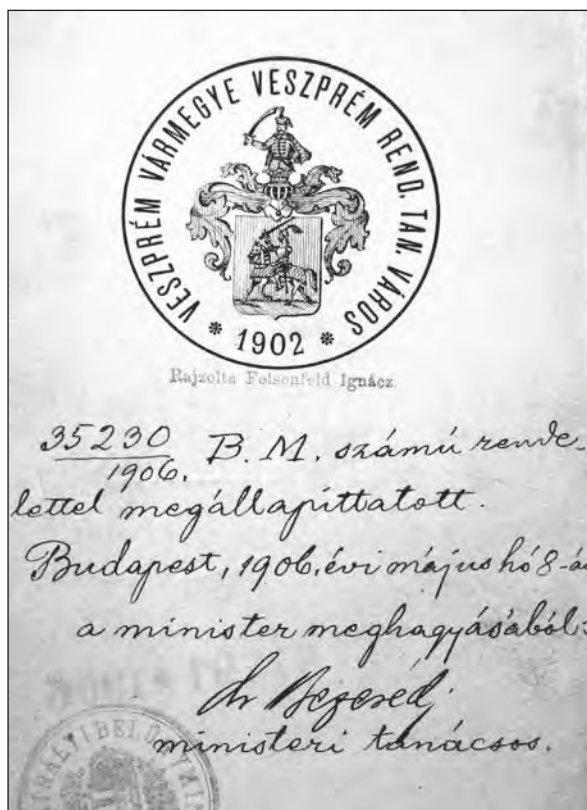 VESZPRÉM VÁRMEGYE VESZPRÉM REND. TAN. VÁROS
* 1902 *
Rajzolta Felsenfeld Ignácz.
35230
1906. B. M. számú rende-
lettel megállapíttatott.
Budapest, 1906. évi május hó 8-á
a minister meghagyásából:
dr Bezerédj
ministeri tanácsos.